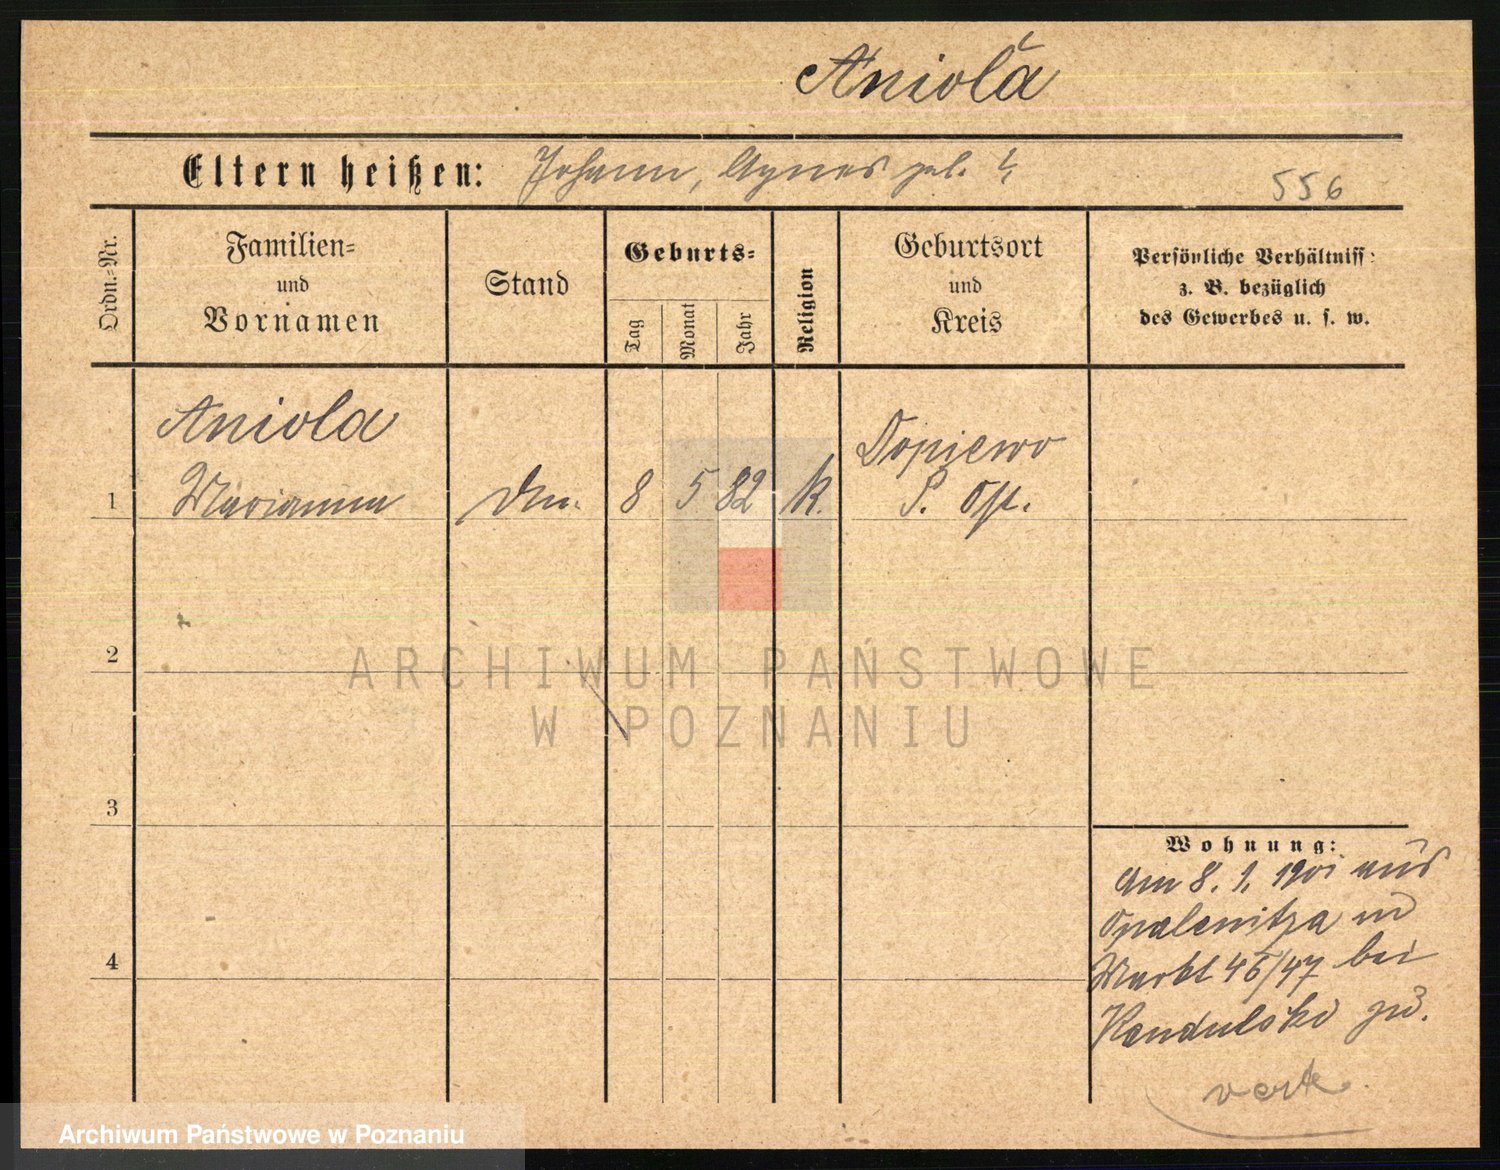 Anioła
Eltern heißen: Johann, Agnes geb. ?
556
Ordn.=Nr.
Familien=
und
Vornamen
Stand
Geburts=
Tag
Monat
Jahr
Religion
Geburtsort
und
Kreis
Persönliche Verhältniss:
z. B. bezüglich
des Gewerbes u. s. w.
Aniola
Dopiewo
1 Marianna 8 5 82 k. P.
2
3
4
Wohnung:
Am 8. 1. 1901 aus
Opalenitza
Markt 46/47 bei
Kendulski zu.
ARCHIWUM PAŃSTWOWE
W POZNANIU
Archiwum Państwowe w Poznaniu